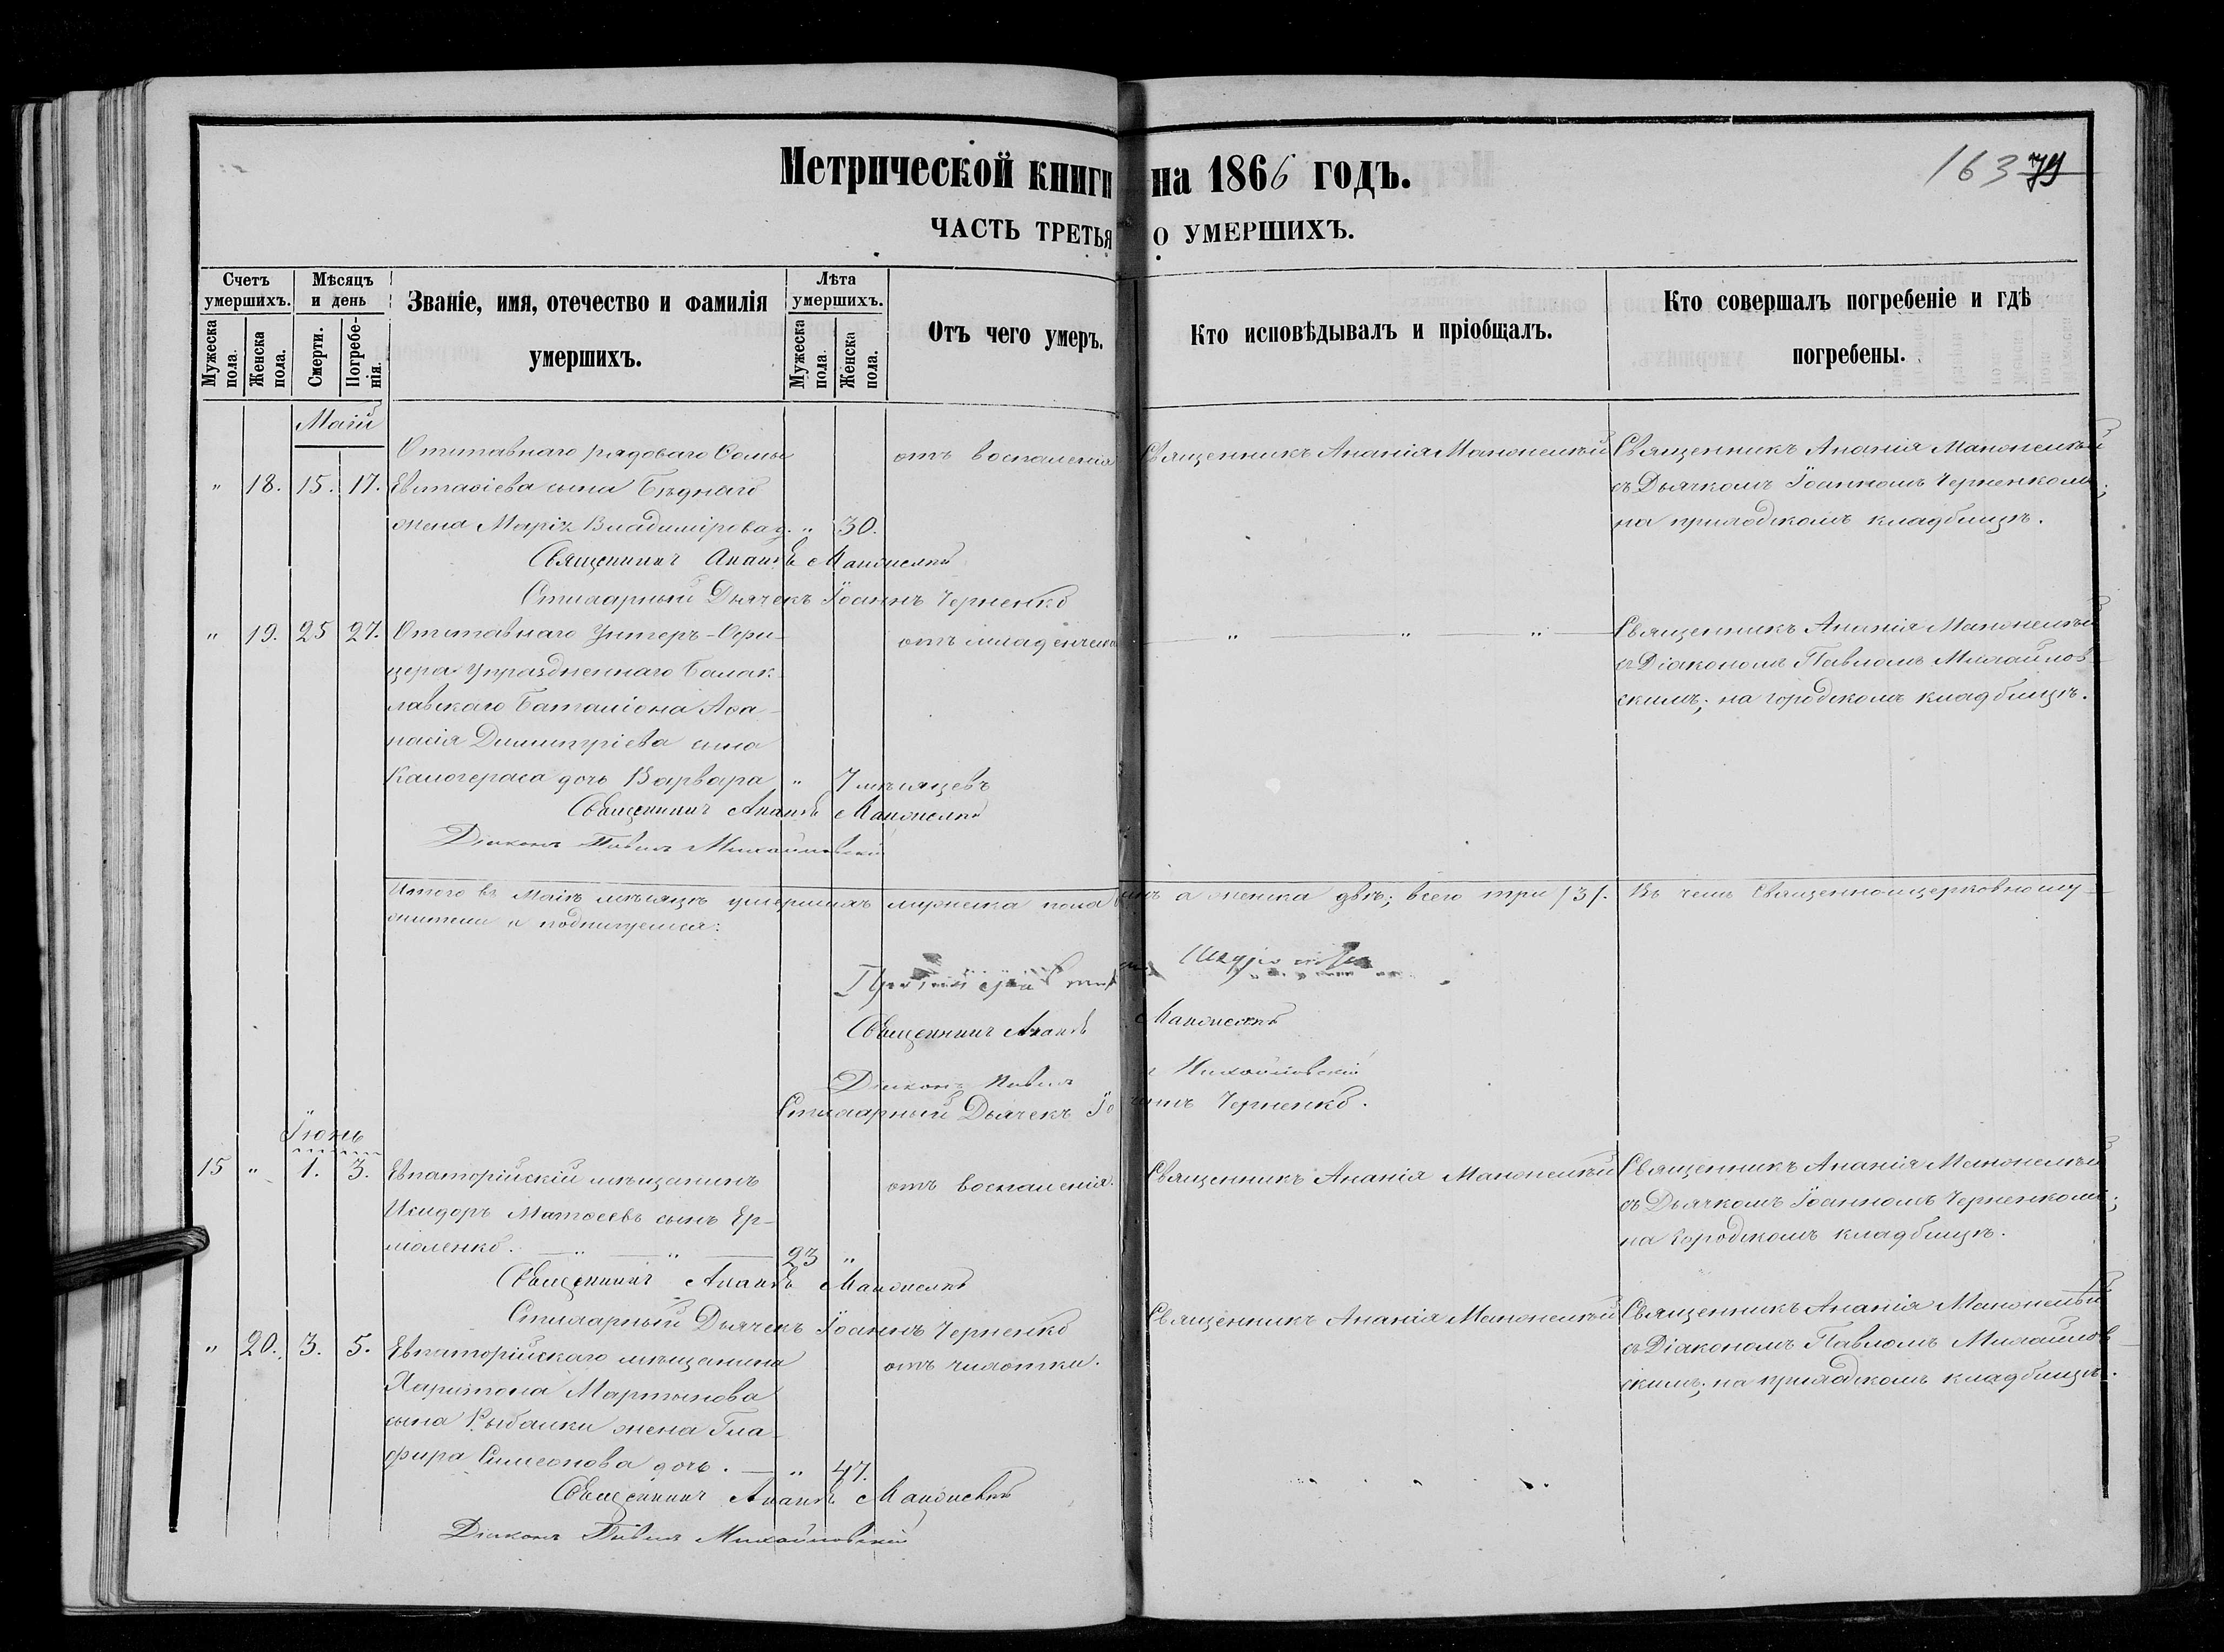 Метрической книги на 1866 годъ.
163 79
ЧАСТЬ ТРЕТЬЯ О УМЕРШИХЪ.
Счетъ умершихъ.
Мужеска пола.
Женска пола.
Мѣсяцъ и день
Смерти.
Погребенія.
Званіе, имя, отечество и фамилія
умершихъ.
Лѣта умершихъ.
Мужеска пола.
Женска пола.
Отъ чего умеръ.
Кто исповѣдывалъ и пріобщалъ.
Кто совершалъ погребеніе и гдѣ
погребены.
Маій
Отставнаго рядоваго
отъ воспаленія
Священникъ Ананія
Священникъ Ананія
" 18. 15. 17. Евстафіева сына Бѣднаго
съ Дьячкомъ Іоанномъ Черненкомъ;
жена Марія Владимірова д. " 30.
на приходскомъ кладбищѣ.
Священникъ Ананія
Стихарный Дьячекъ Іоаннъ Черненко
" 19. 25 27. Отставнаго Унтеръ-Офи-
отъ младенческ
" " "
Священникъ Ананія
цера Упраздненнаго Балак-
съ Діакономъ Павломъ Михайлов-
лавскаго Баталіона Афа-
скимъ; на городскомъ кладбищѣ.
насія Димитріева сына
Калогераса дочь Варвара " 7 мѣсяцевъ
Священникъ Ананія
Діаконъ Павелъ Михайловскій
Итого въ Маіѣ мѣсяцѣ умершихъ мужеска пола одинъ а женска двѣ; всего три /3/. Въ чемъ Священноцерковнослу-
жители и подпишемся:
Священникъ Ананія
Діаконъ Павелъ Михайловскій
Стихарный Дьячекъ Іоаннъ Черненко.
Іюнь
15 " 1. 3. Евпаторійскій мѣщанинъ
отъ воспаленія.
Священникъ Ананія
Священникъ Ананія
Исидоръ Матѳеевъ сынъ Ер-
съ Дьячкомъ Іоанномъ Черненкомъ;
моленко. " " 23 "
на городскомъ кладбищѣ.
Священникъ Ананія
Стихарный Дьячекъ Іоаннъ Черненко
Священникъ Ананія
Священникъ Ананія
" 20. 3. 5. Евпаторійскаго мѣщанина
отъ чихотки.
съ Діакономъ Павломъ Михайлов-
Харитона Мартынова
скимъ; на приходскомъ кладбищѣ.
сына Рыбалки жена Гла-
фира Симеонова дочь. " 47.
Священникъ Ананія
Діаконъ Павелъ Михайловскій